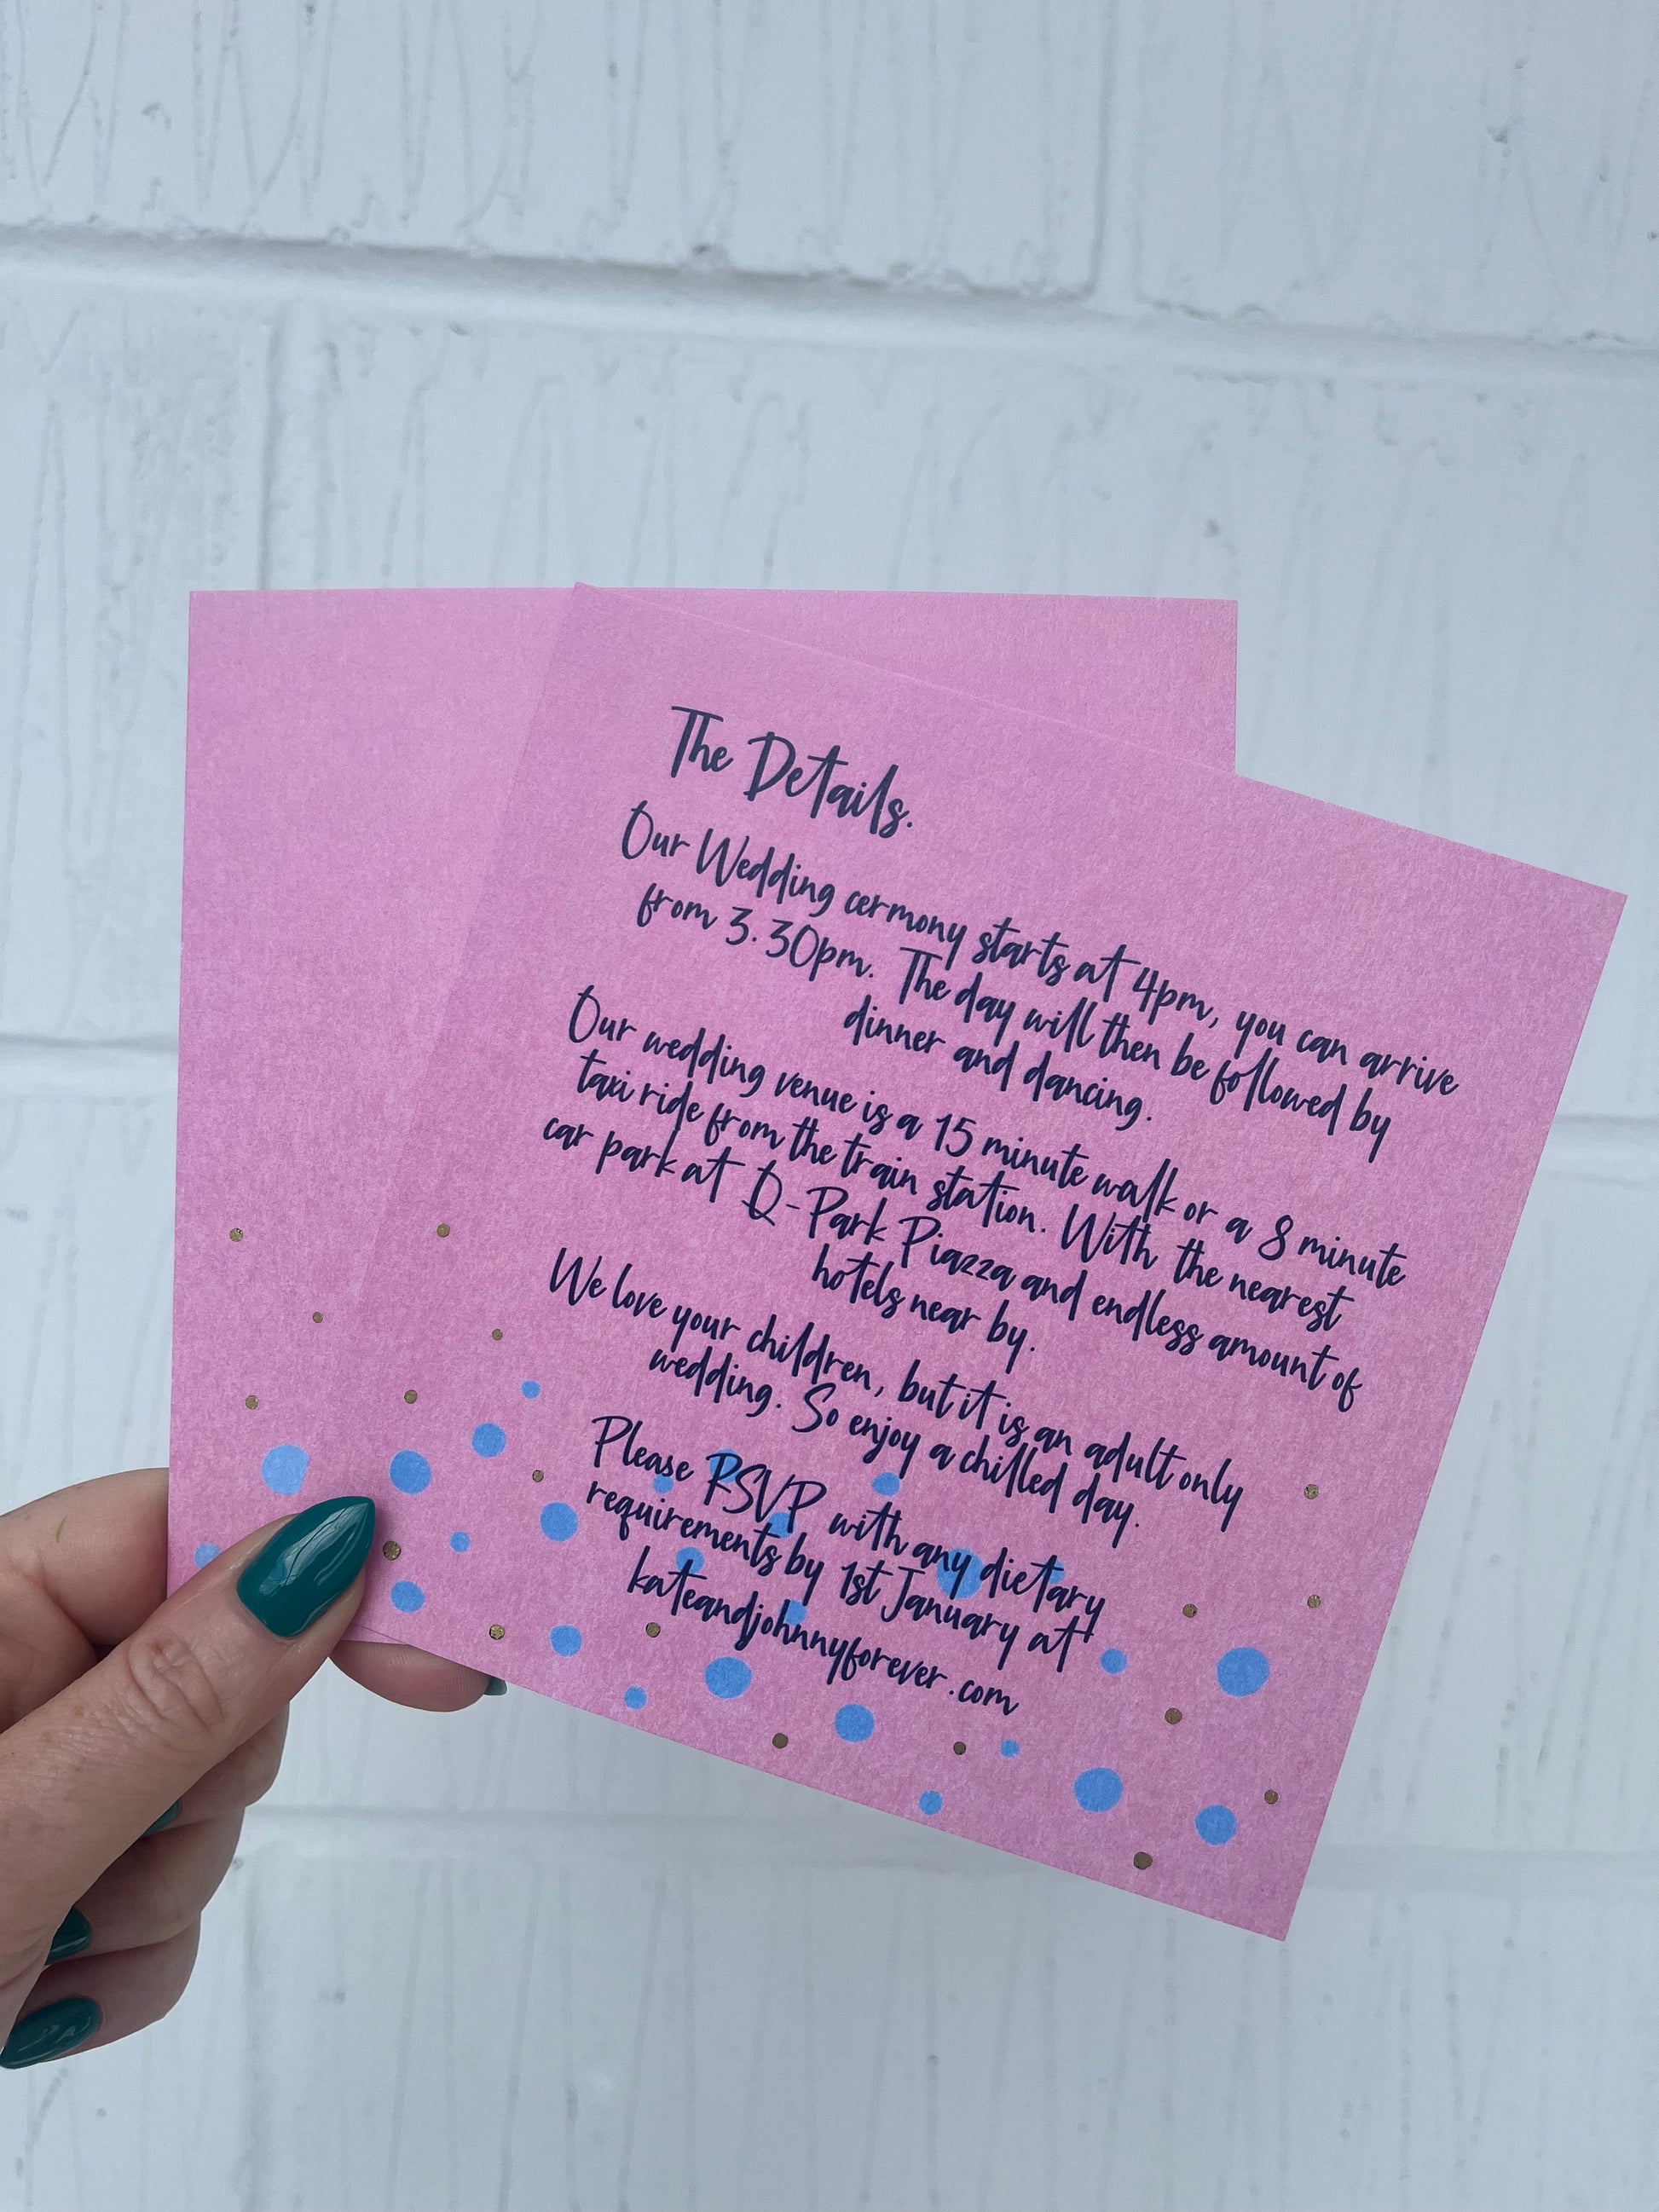 The Details.
Our Wedding cermony starts at 4pm, you can arrive
from 3.30pm. The day will then be followed by
dinner and dancing.
Our wedding venue is a 15 minute walk or a 8 minute
taxi ride from the train station. With the nearest
car park at Q-Park Piazza and endless amount of
hotels near by.
We love your children, but it is an adult only
wedding. So enjoy a chilled day.
Please RSVP with any dietary
requirements by 1st January at
kateandjohnnyforever.com